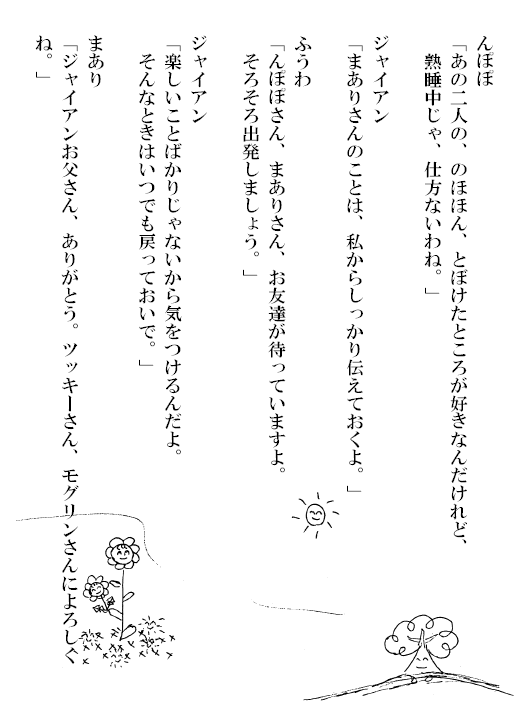 んぽぽ
「あの二人の、のほほん、とぼけたところが好きなんだけれど、
熟睡中じゃ、仕方ないわね。」
ジャイアン
「まありさんのことは、私からしっかり伝えておくよ。」
ふうわ
「んぽぽさん、まありさん、お友達が待っていますよ。
そろそろ出発しましょう。」
ジャイアン
「楽しいことばかりじゃないから気をつけるんだよ。
そんなときはいつでも戻っておいで。」
まあり
「ジャイアンお父さん、ありがとう。ツッキーさん、モグリンさんによろしく
ね。」